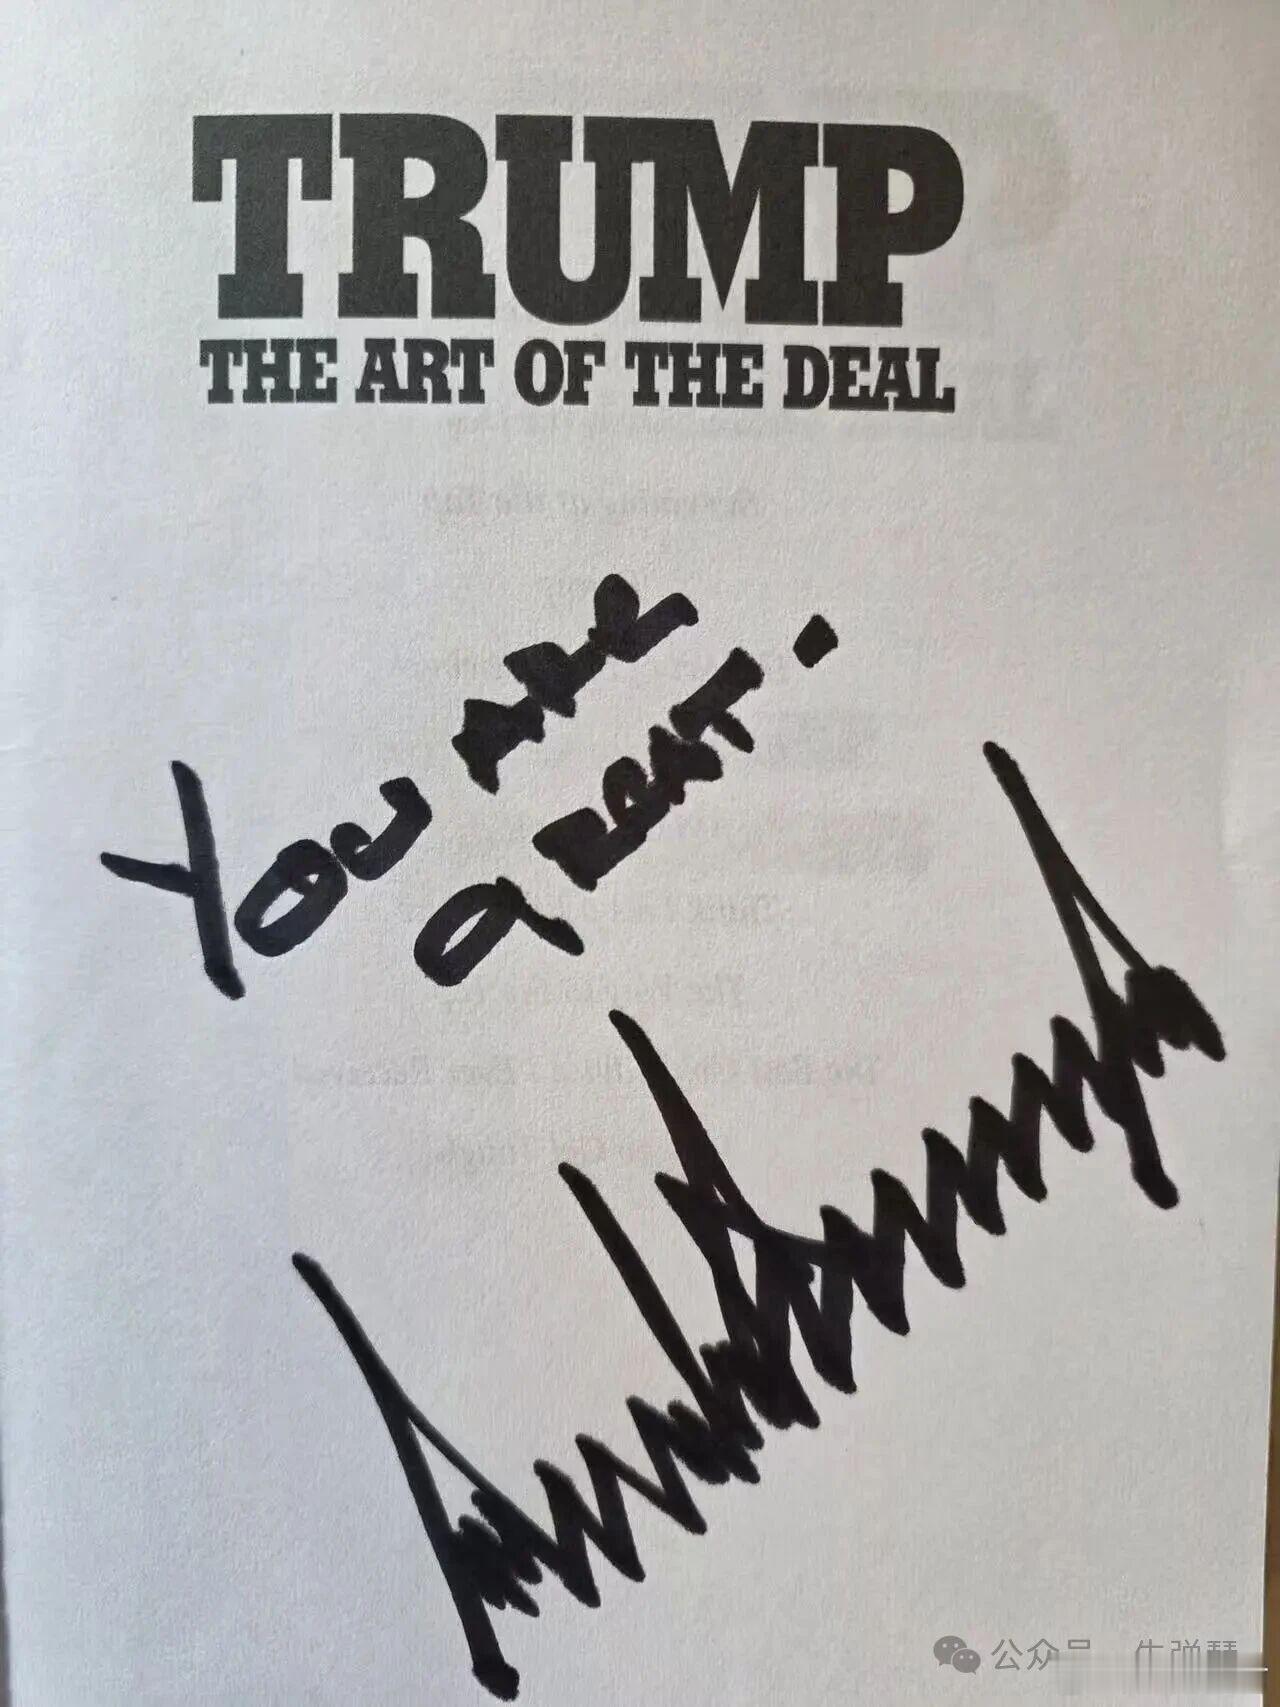 TRUMP
THE ART OF THE DEAL
YOU ARE
GREAT.
公众号 牛弹琴